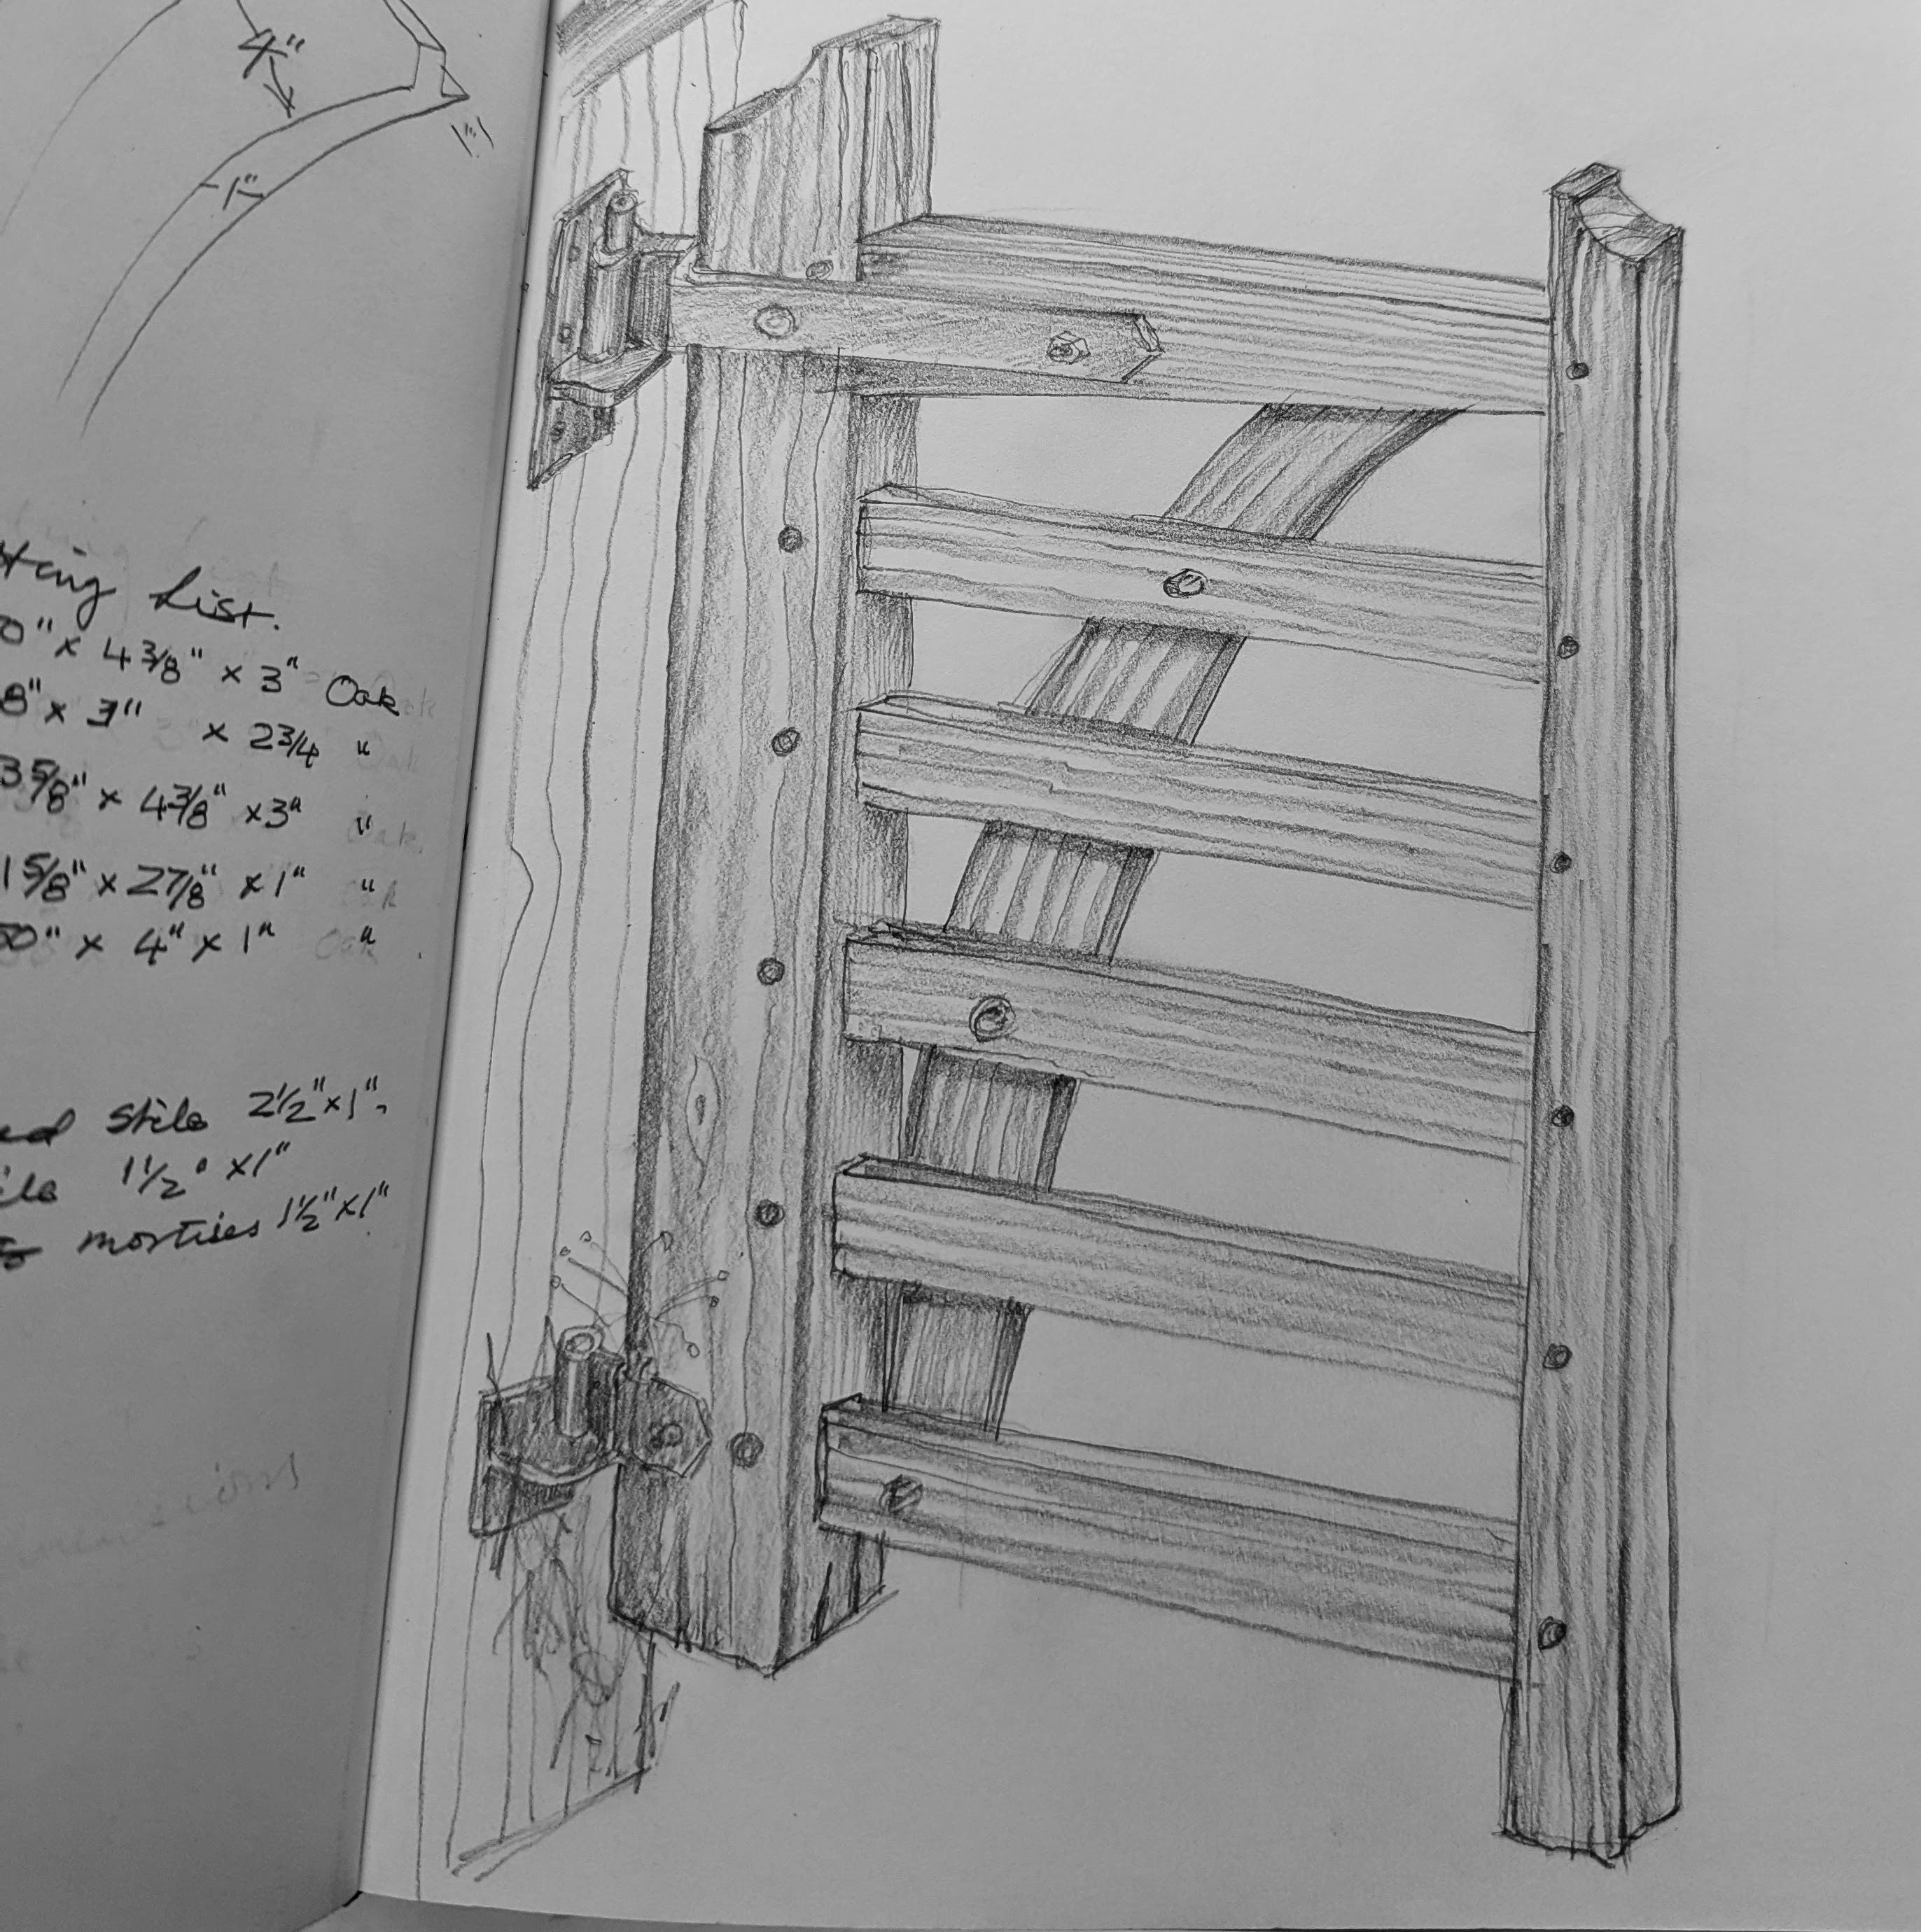 4"
1"
1"
List.
0" x 4 3/8" x 3" Oak
8" x 3" x 2 3/4 "
3 5/8" x 4 3/8" x 3" "
1 5/8" x 2 7/8" x 1" "
50" x 4" x 1" "
Stile 2 1/2" x 1"
1 1/2" x 1"
mortises 1 1/2" x 1"